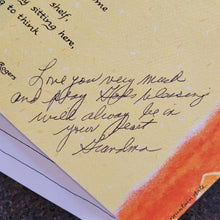 shelf.
by sitting here,
to think
Rogers
Love you very much
and pray His blessing
will always be in
your heart
Grandma